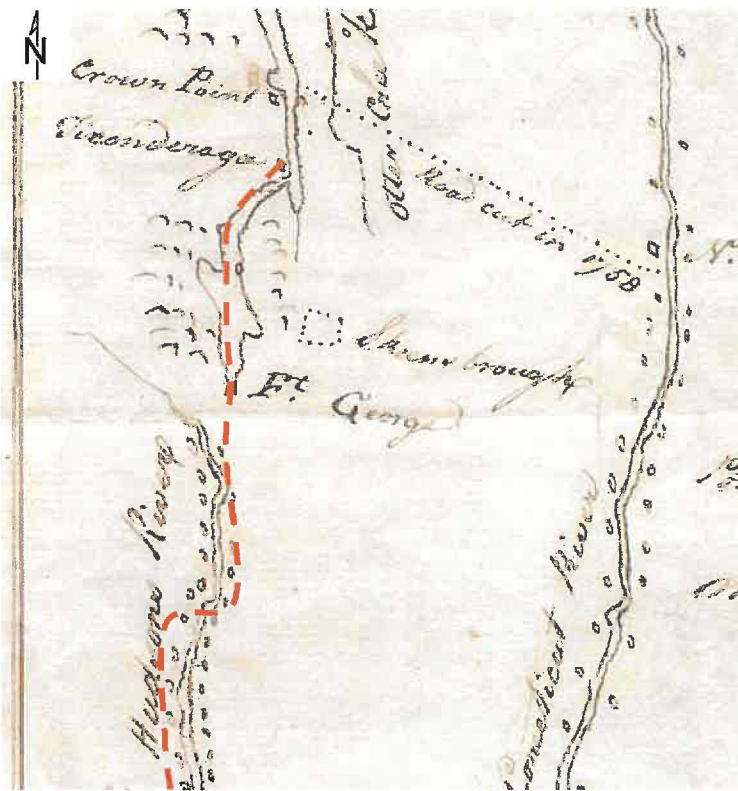 N
Crown Point
Ticonderoga
Otter Creek
Road cut in 1758
N.
Ft. George
Hudsons River
Conecticut River